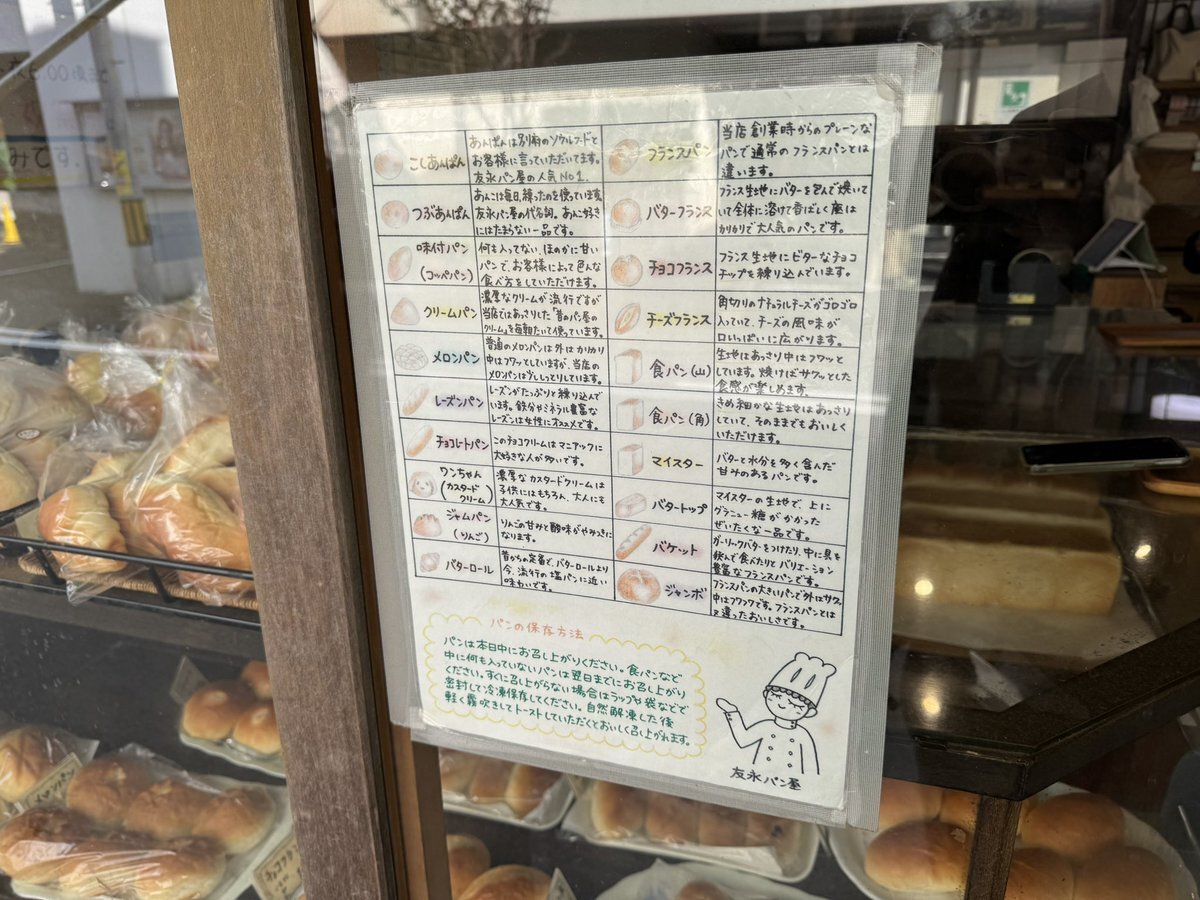 こしあんぱん
あんぱんは別府のソウルフードと
お客様に言っていただいてます。
友永パン屋の人気NO1.
つぶあんぱん
あんこは毎日、練ったのを使っています。
友永パン屋の代名詞。あんこ好き
にはたまらない一品です。
味付パン
(コッペパン)
何も入ってない、ほのかに甘い
パンで、お客様によって色んな
食べ方をしていただけます。
クリームパン
濃厚なクリームが流行ですが
当店ではあっさりした「昔のパン屋の
クリーム」を毎朝たいて使っています。
メロンパン
普通のメロンパンは外はかりかり
中はフワッとしていますが、当店の
メロンパンは少ししっとりしています。
レーズンパン
レーズンがたっぷりと練り込んで
います。鉄分やミネラル豊富な
レーズンは女性にオススメです。
チョコレートパン
このチョコクリームはマニアックに
大好きな人が多いです。
ワンちゃん
(カスタード
クリーム)
濃厚なカスタードクリームは
子供にはもちろん、大人にも
大人気です。
ジャムパン
(りんご)
りんごの甘みと酸味がやみつきに
なります。
バターロール
昔からの定番で、バターロールより
今、流行の塩パンに近い
味わいです。
フランスパン
当店創業時からのプレーンな
パンで通常のフランスパンとは
違います。
バターフランス
フランス生地にバターを包んで焼いて
いて全体に溶けて香ばしく底は
かりかりで大人気のパンです。
チョコフランス
フランス生地にビターなチョコ
チップを練り込んでいます。
チーズフランス
角切りのナチュラルチーズがゴロゴロ
入っていて、チーズの風味が
口いっぱいに広がります。
食パン(山)
生地はあっさり中はフワッと
しています。焼けばサクッとした
食感が楽しめます。
食パン(角)
きめ細かな生地はあっさり
していて、そのままでもおいしく
いただけます。
マイスター
バターと水分を多く含んだ
甘みのあるパンです。
バタートップ
マイスターの生地で、上に
グラニュー糖がかかった
ぜいたくな一品です。
バケット
ガーリックバターをつけたり、中に具を
挟んで食べたりとバリエーション
豊富なフランスパンです。
ジャンボ
フランスパンの大きいパンで外はサクッ
中はフワフワです。フランスパンとは
違ったおいしさです。
パンの保存方法
パンは本日中にお召し上がりください。食パンなど
中に何も入っていないパンは翌日までにお召し上がり
ください。すぐに召し上がらない場合はラップや袋などで
密封して冷凍保存してください。自然解凍した後
軽く霧吹きしてトーストしていただくとおいしく召し上がれます。
友永パン屋